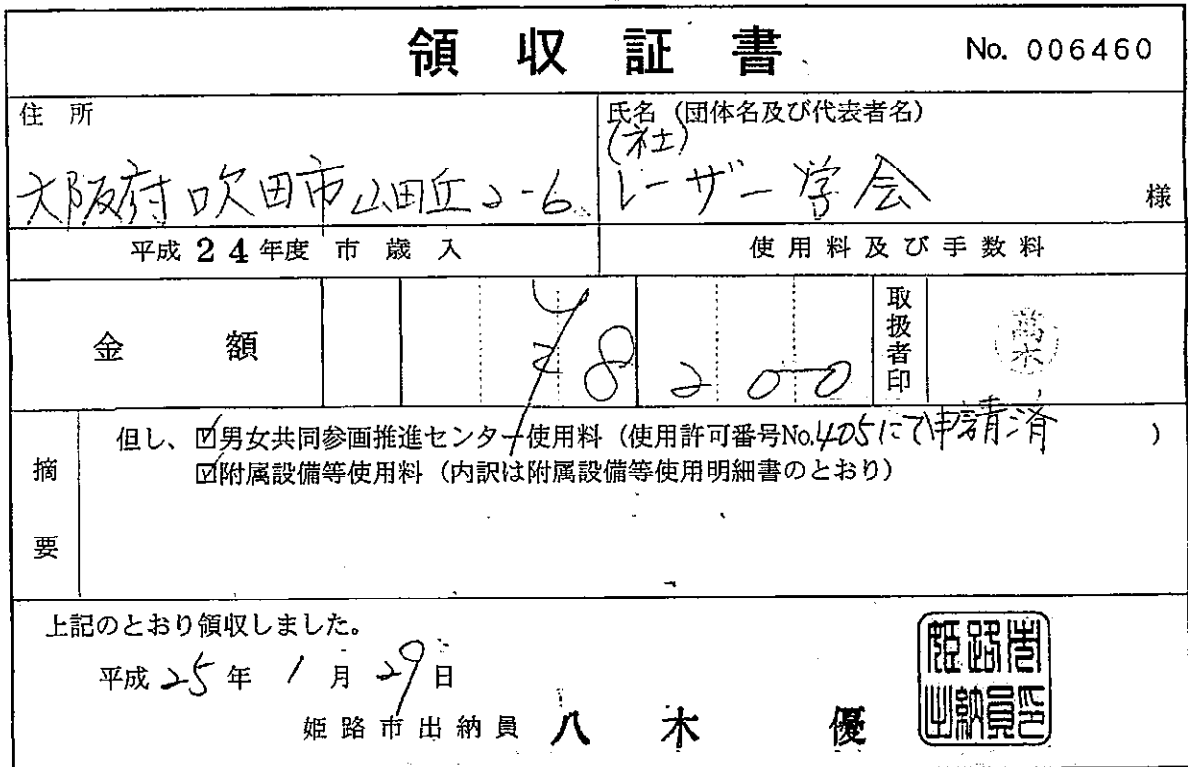 領収証書
No. 006460
住所
大阪府吹田市山田丘2-6
氏名（団体名及び代表者名）
(社)
レーザー学会 様
平成24年度 市歳入
使用料及び手数料
金額
¥8200
取扱者印
但し、☑男女共同参画推進センター使用料（使用許可番号No.405にて申請済）
☑附属設備等使用料（内訳は附属設備等使用明細書のとおり）
摘要
上記のとおり領収しました。
平成25年1月29日
姫路市出納員 八木 優
姫路市出納員印